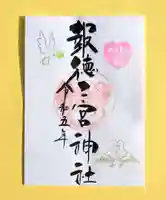 報徳二宮神社
令和五年